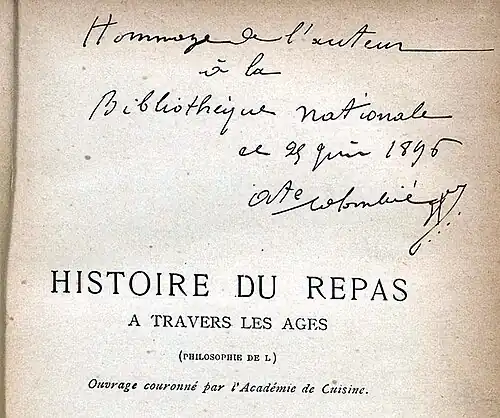 Hommage de l'auteur
à la
Bibliothèque nationale
le 25 juin 1896
Ate Colombié
HISTOIRE DU REPAS
A TRAVERS LES AGES
(PHILOSOPHIE DE L)
Ouvrage couronné par l'Académie de Cuisine.